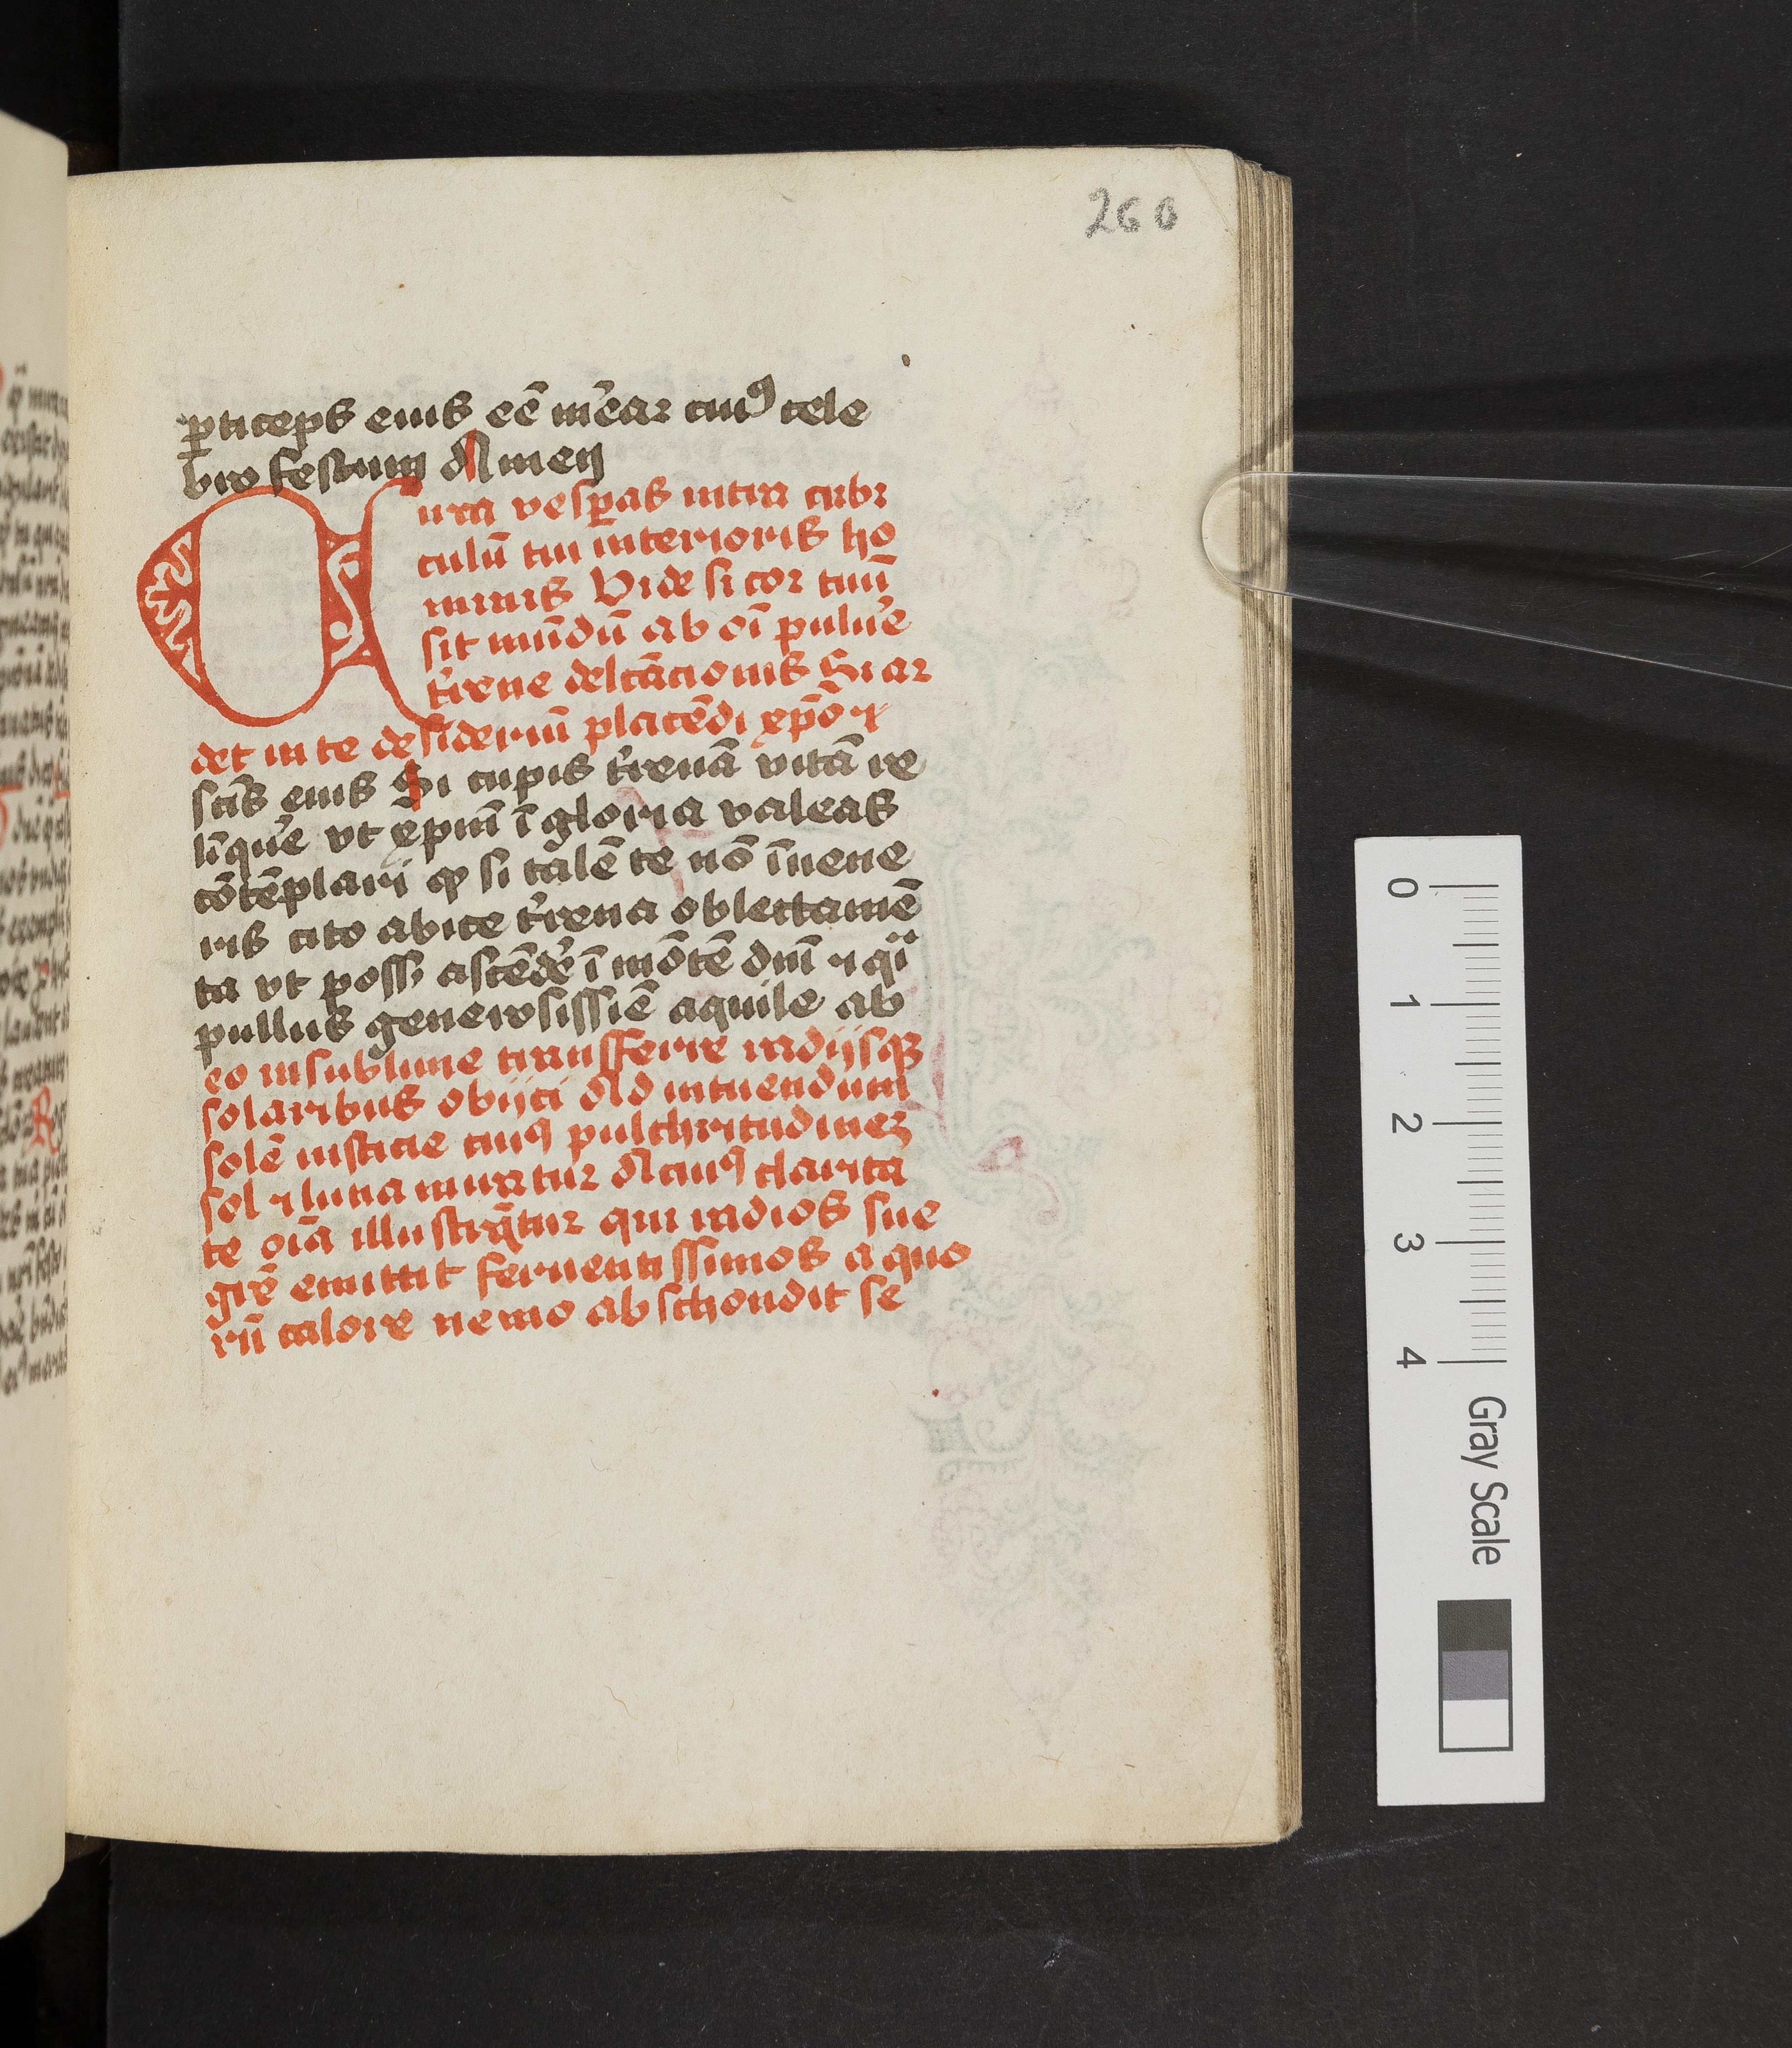 260
ꝑticeps eius eē m̄ear cuiꝰ cele
bro festum Amen
Circa vesꝑas intra cubi
culū tui interioris ho
minis Vide si cor tuū
sit mūdū ab oī puluꝰe
tꝰrene delcācionis Si ar
det in te desideriū placēdi xp̄o ⁊
sctīs eius Si cupis tꝰrenā vitā re
līquꝰe vt xpm̄ ī gloria valeas
cōtēplari ꝙ si talē te nō īuene
ris cito abice tꝰrena oblectamē
ta vt possꝭ ascēdꝰe ī mōtē dn̄i ⁊ qͥ
pullus generosissīe aquile ab
eo in sublime transferre radijsqꝫ
solaribus obijci Ad intuendum
solē iusticie cuiꝰ pulchritudinez
sol ⁊ luna miratur A cuiꝰ clarita
te oīa illustrātur qui radios sue
grē emittit feruentissimos a quo
rū calore nemo abschondit se
0
1
2
3
4
Gray Scale